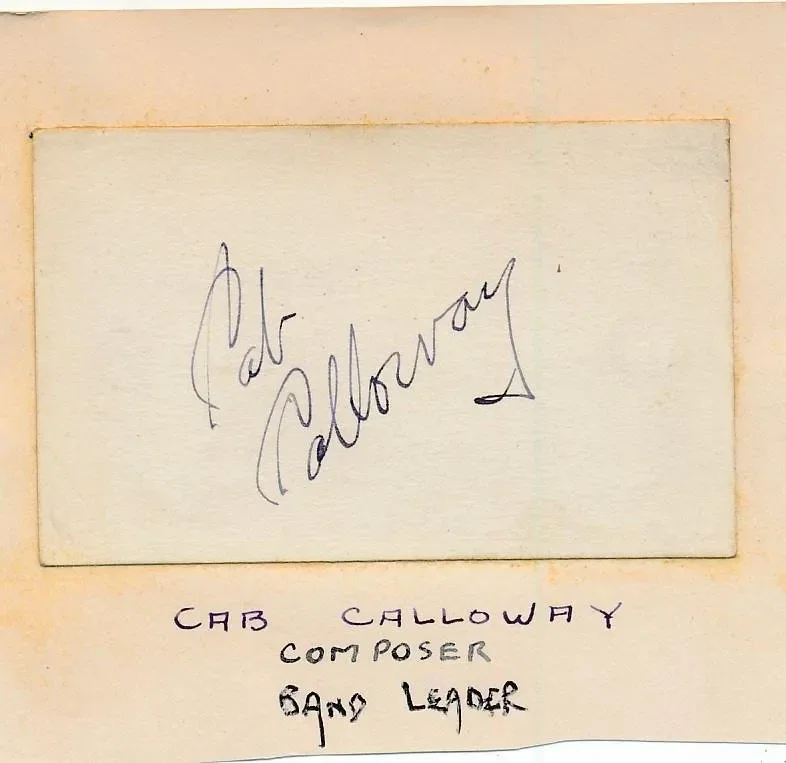 Cab
Calloway
CAB CALLOWAY
COMPOSER
BAND LEADER